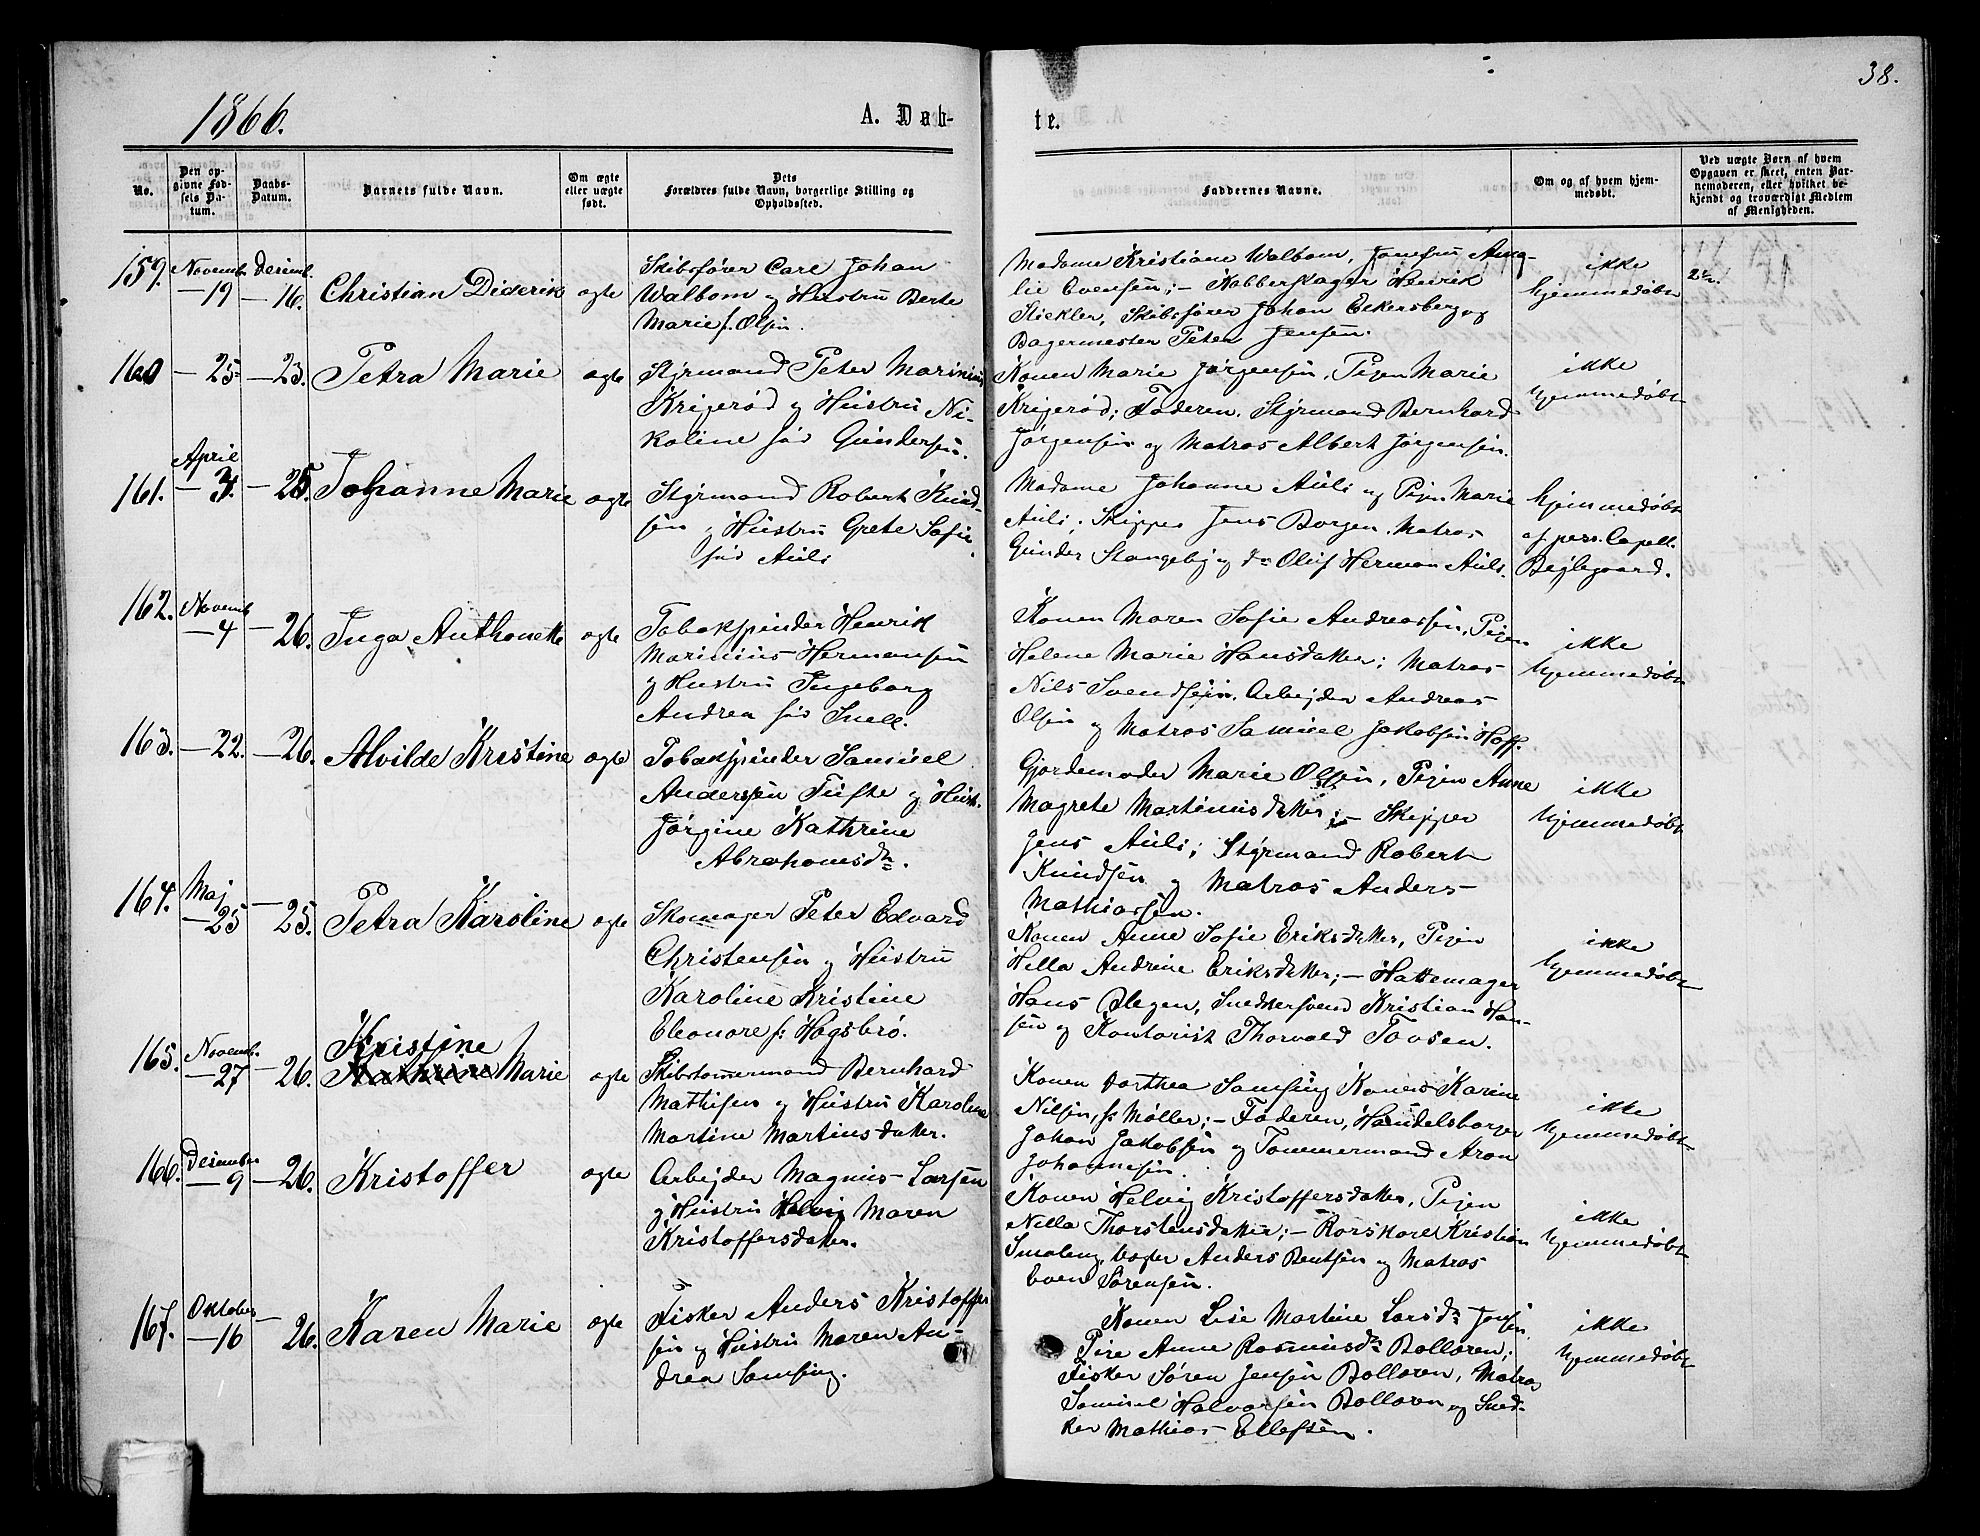 38.
1866.
A. Døb-
te.
No.
Den op-
givne Fød-
sels Da-
tum.
Daabs-
Datum.
Barnets fulde Navn.
Om ægte
eller uægte
født.
Dets
Forældres fulde Navn, borgerlige Stilling og
Opholdssted.
Faddernes Navne.
Om og af hvem hjem-
medøbt.
Ved uægte Børn af hvem
Opgaven er skeet, enten Bar-
nemoderen, eller hvilket be-
kjendt og troværdigt Medlem
af Menigheden.
159.
Novemb.
— 19
Desemb.
— 16.
Christian Diderik
ægte
Skibsfører Carl Johan
Walbom og Hustru Berte
Marie f. Olsen.
Madame Kristiane Walbom, Jomfru Ama-
lie Evensen; — Kobberslager Henrik
Stickler, Skibsfører Johan Eckersberg og
Bagermester Peter Jensen.
ikke
hjemmedøbt
160
— 25
— 23.
Petra Marie
ægte
Styrmand Peter Marinius
Krigerød og Hustru Ni-
koline før Gundersen.
Konen Marie Jørgensen, Pigen Marie
Krigerød; Faderen, Styrmand Bernhard
Jørgensen og Matros Albert Jørgensen.
ikke
hjemmedøbt
161.
April
— 3.
— 25
Johanne Marie
ægte
Styrmand Robert Knud-
sen og Hustru Grete Sofie
før Auli
Madame Johanne Auli og Pigen Marie
Auli; Skipper Jens Borgen, Matros
Gunder Stangeby og do Oluf Herman Auli.
hjemmedøbt
af pers. Capell.
Bejlegaard.
162.
Novemb
— 4
— 26.
Inga Anthonette
ægte
Tobakspinder Henrik
Marinius Hermansen
og Hustru Ingeborg
Andrea før Snell.
Konen Maren Sofie Andreassen, Pigen
Helene Marie Hansdatter; Matros
Nils Svendsen, Arbejder Andreas
Olsen og Matros Samuel Jakobsen Hoff.
ikke
hjemmedøbt
163.
— 22.
— 26.
Alvilde Kristine
ægte
Tobakspinder Samuel
Anderssen Tufte og Hustr.
Jørgine Kathrine
Abrahamsdr.
Gjordemoder Marie Olsen, Pigen Anne
Magrete Martinusdatter; — Skipper
Jens Auli; Styrmand Robert
Knudsen og Matros Anders
Mathiassen.
ikke
hjemmedøbt
164.
Maj
— 25
— 25.
Petra Karoline
ægte
Skomager Peter Edvard
Christensen og Hustru
Karoline Kristine
Eleonore f. Høgsbro.
Konen Anne Sofie Eriksdatter, Pigen
Hella Andrine Eriksdatter; — Hattemager
Hans Olegen, Snedkersvend Kristian Han-
sen og Kontorist Thorvald Tovsen.
ikke
hjemmedøbt
165.
Novemb.
— 27
— 26.
Kristine
Kathrine Marie
ægte
Skibstømmermand Bernhard
Mathisen og Hustru Karoline
Martine Martinusdatter.
Konen Dorthea Samsing Konen Karine
Nilsen, f. Møller; — Faderen, Handelsborger
Johan Jakobsen og Tømmermand Aron
Johannesen.
ikke
hjemmedøbt
166.
Desember
— 9
— 26.
Kristoffer
ægte
Arbejder Magnus Larsen
og Hustru Helvig Maren
Kristoffersdatter.
Konen Helvig Kristoffersdatter, Pigen
Nilla Thorstensdatter; — Rorskarl Kristian
Smaleng, Loser Anders Bentsen og Matros
Even Sørensen.
ikke
hjemmedøbt
167.
Oktober
— 16
— 26.
Karen Marie
ægte
Fisker Anders Kristoffer
sen og Hustru Maren An-
drea Samsing.
Konen Lise Martine Larsdr Jensen
Pige Anne Rasmusdr Bollæren;
Fisker Søren Jensen Bollæren, Matros
Samuel Halvorsen Bollæren og Sned-
ker Mathias Ellefsen.
ikke
hjemmedøbt